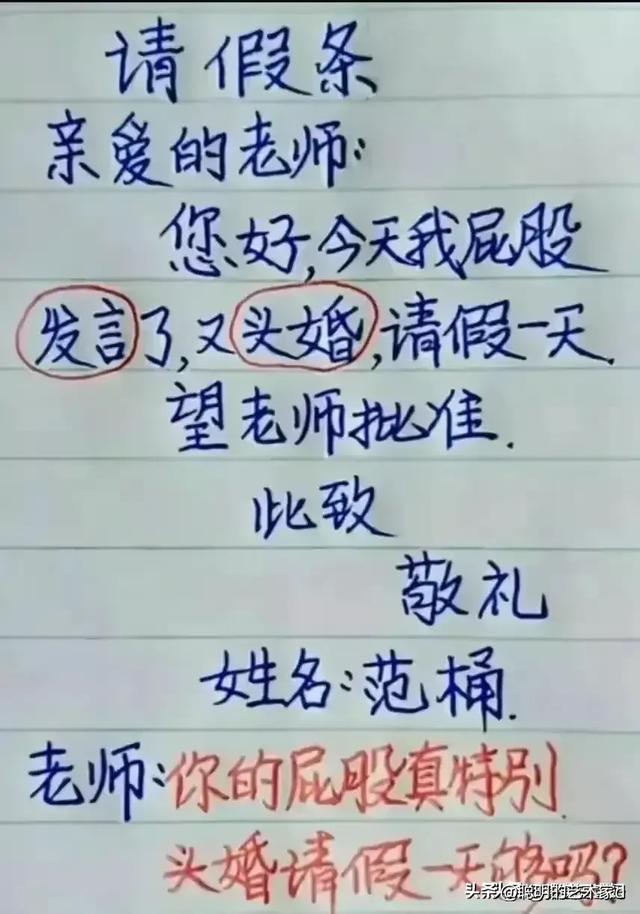 请假条
亲爱的老师:
您好,今天我屁股
发言了,又头婚,请假一天.
望老师批准.
此致
敬礼
姓名:范桶.
老师:你的屁股真特别.
头婚请假一天够吗?
头条@聪明的艺术家d